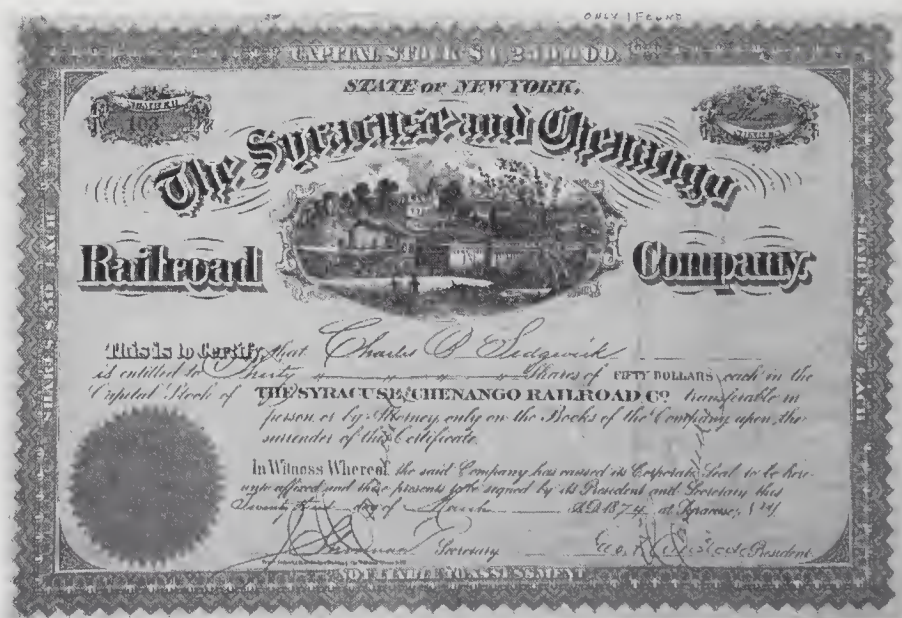 ONLY 1 FOUND
CAPITAL STOCK $1,250,000.
STATE OF NEW YORK,
NUMBER
103
Thirty
SHARES
The Syracuse and Chenango
Railroad Company.
SHARES $50 EACH
SHARES $50 EACH
This is to Certify that Charles B Sedgwick
is entitled to Thirty Shares of FIFTY DOLLARS each in the
Capital Stock of THE SYRACUSE & CHENANGO RAILROAD CO transferable in
person or by Attorney only on the Books of the Company upon the
surrender of this Certificate.
In Witness Whereof, the said Company has caused its Corporate Seal to be here-
unto affixed and these presents to be signed by its President and Secretary this
day of March A.D. 1874 at Syracuse, N.Y.
Secretary President.
NOT LIABLE TO ASSESSMENT